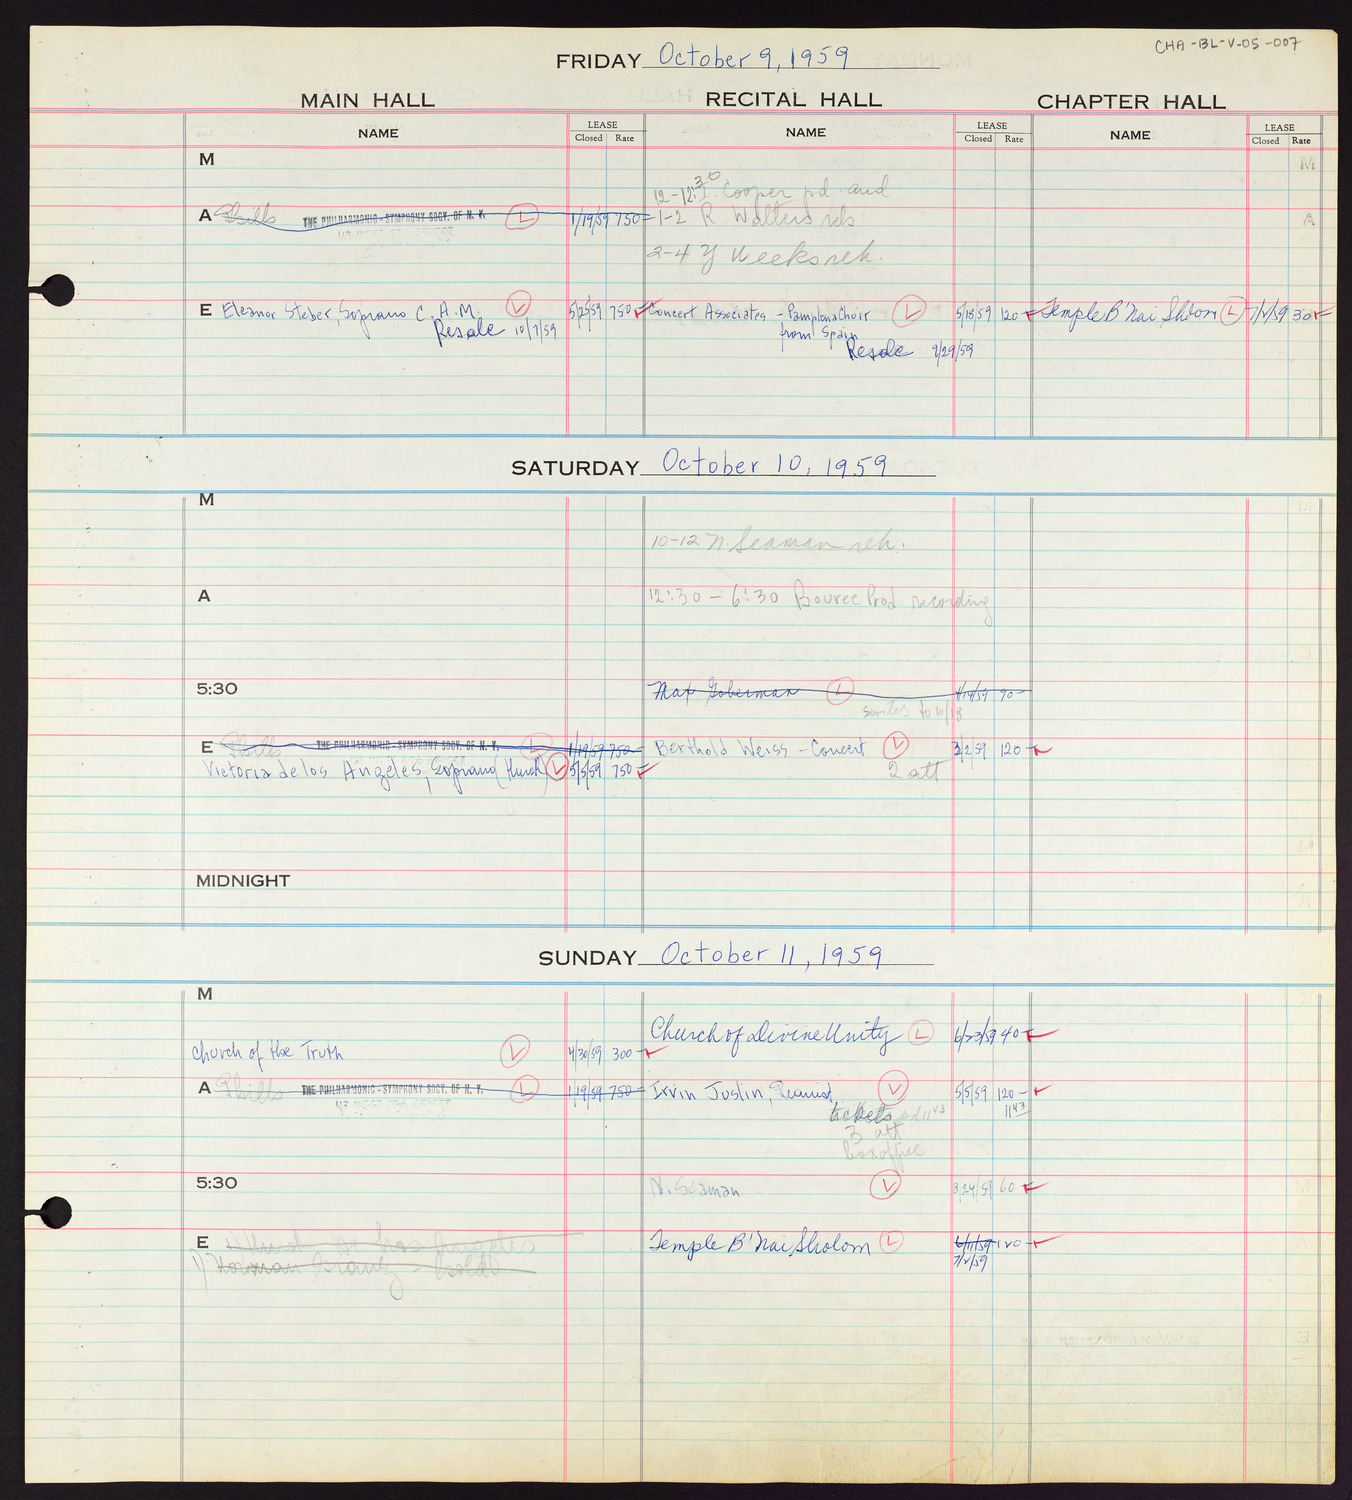 CHA-BL-V-05-007
FRIDAY October 9, 1959
MAIN HALL RECITAL HALL CHAPTER HALL
NAME LEASE Closed Rate NAME LEASE Closed Rate NAME LEASE Closed Rate
M
12-12:30 Cooper pd. and
A Phills THE PHILHARMONIC-SYMPHONY SOCY. OF N. Y. L 1/19/59 750- 1-2 R. Walters reh
2-4 Y. Weeks reh.
E Eleanor Steber, Soprano C.A.M. V 5/25/59 750 Concert Associates - Pamplona Choir V 5/18/59 120 Temple B'Nai Sholom L 7/1/59 30
Resale 10/7/59 from Spain
Resale 9/29/59
SATURDAY October 10, 1959
M
10-12 N. Seaman reh.
A 12:30 - 6:30 Bouree Prod. recording
5:30 Max Goberman L 90-
switched to 10/18
E Phills THE PHILHARMONIC-SYMPHONY SOCY. OF N. Y. L 1/19/59 750- Berthold Weiss - Concert V 3/2/59 120
Victoria de los Angeles, Soprano (Hurok) V 5/5/59 750 2 att
MIDNIGHT
SUNDAY October 11, 1959
M
Church of Divine Unity L 6/23/59 40
Church of the Truth V 4/30/59 300
A Phills THE PHILHARMONIC-SYMPHONY SOCY. OF N. Y. L 1/19/59 750- Irvin Justin, Pianist V 5/5/59 120-
tickets pd 1143 1143
3 att
box office
5:30 N. Seaman V 3/24/59 60
E Hurok de los Angeles Temple B'Nai Sholom L 6/11/59 120
1) Norman Granz - hold 7/1/59